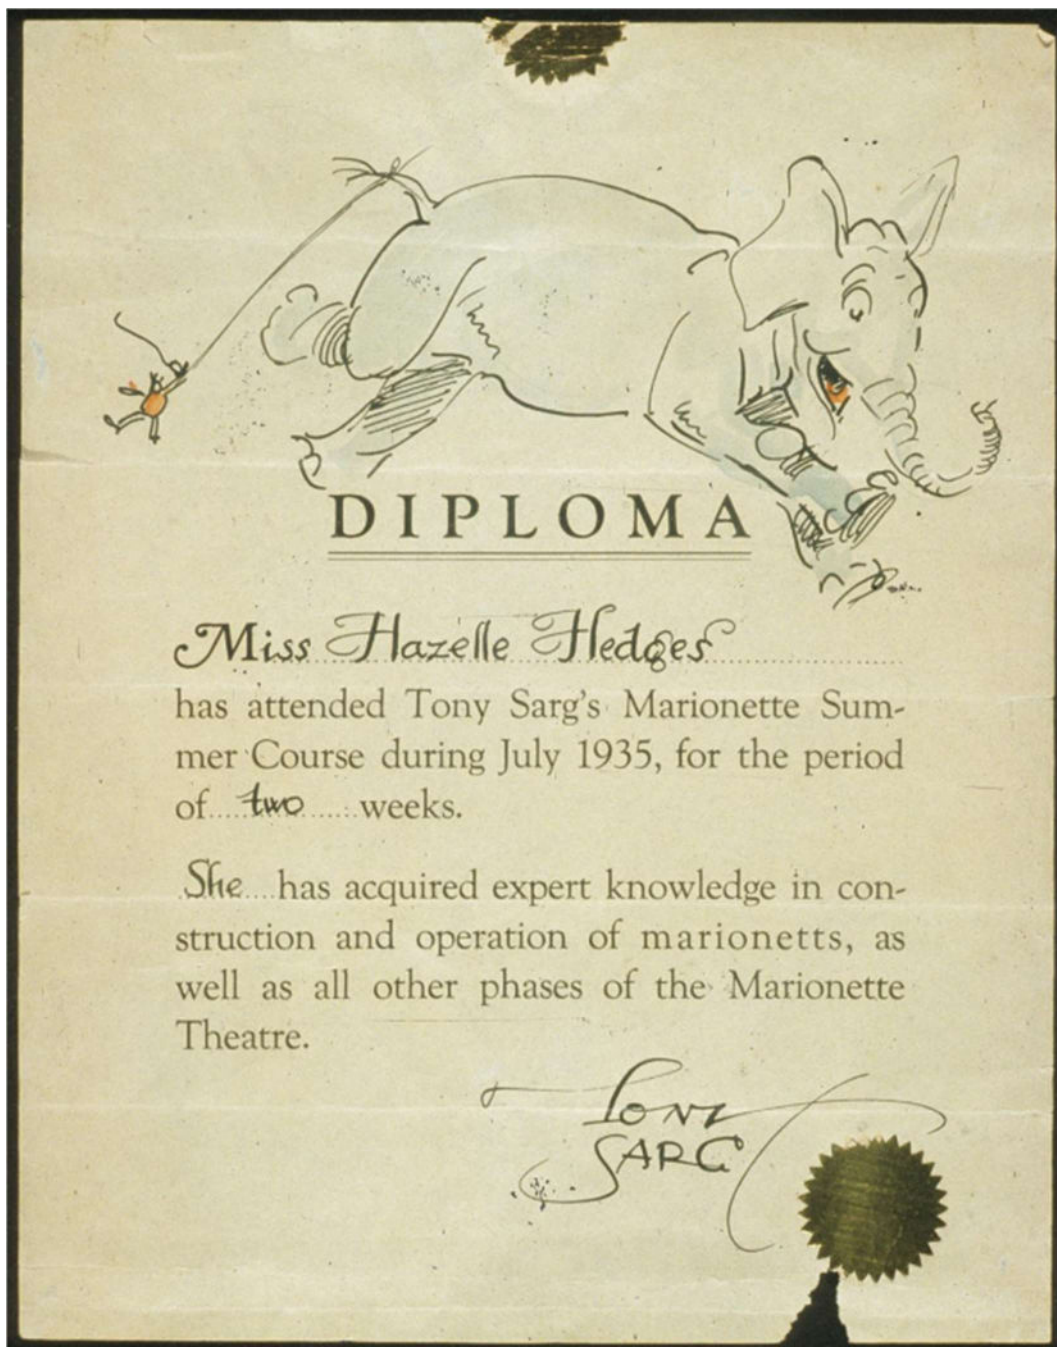 DIPLOMA
Miss Hazelle Hedges
has attended Tony Sarg's Marionette Sum-
mer Course during July 1935, for the period
of two weeks.
She has acquired expert knowledge in con-
struction and operation of marionetts, as
well as all other phases of the Marionette
Theatre.
TONY
SARG